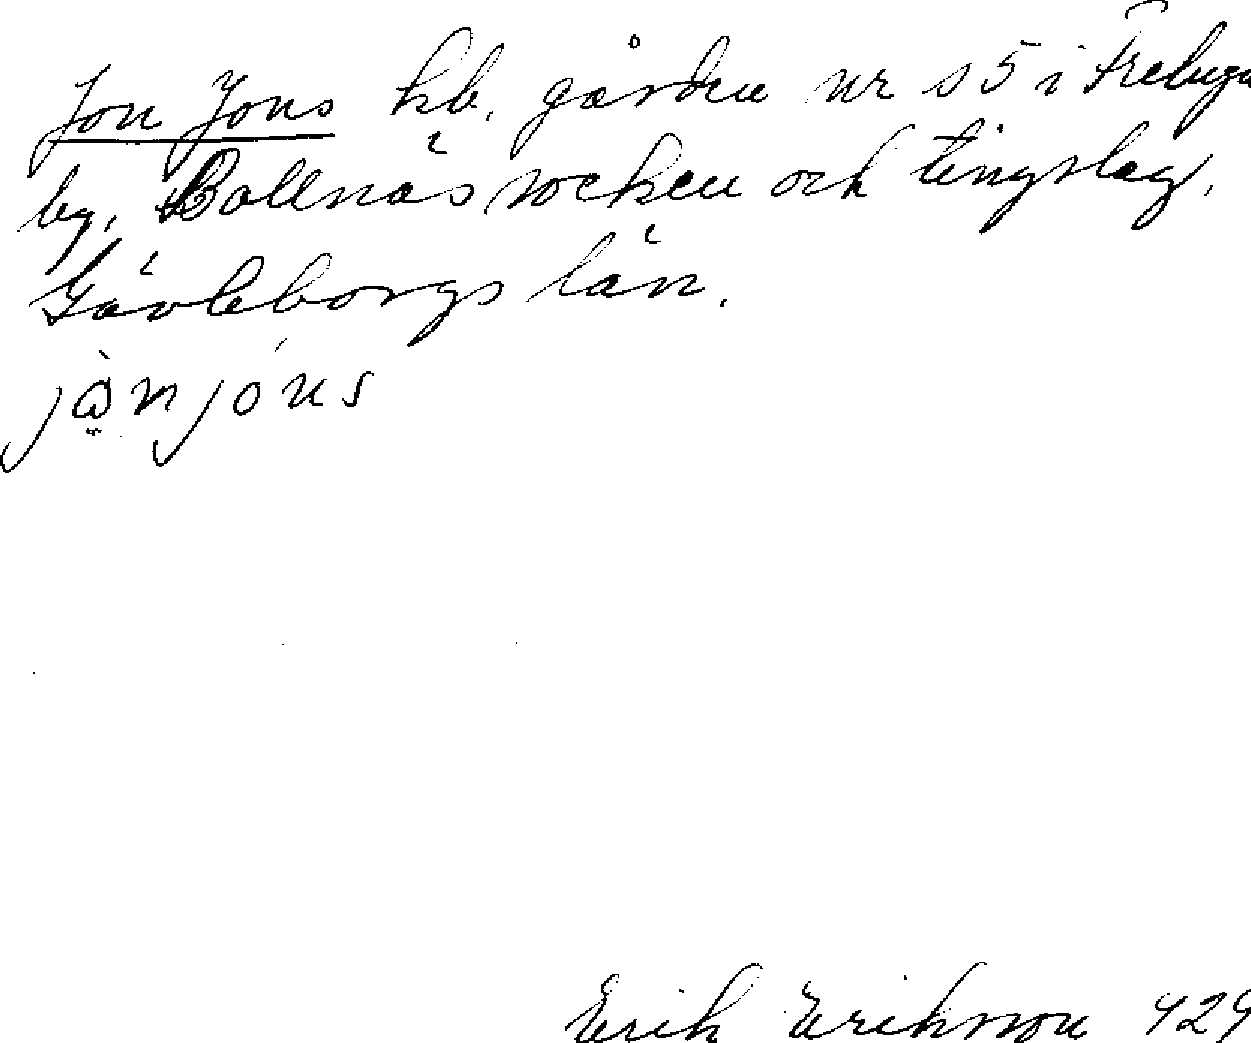 Jon Jons hb. gården nr s 5 i Freluga
by, Bollnäs socken och tingslag,
Gävleborgs län.
jòn jóns
Erik Eriksson 1929